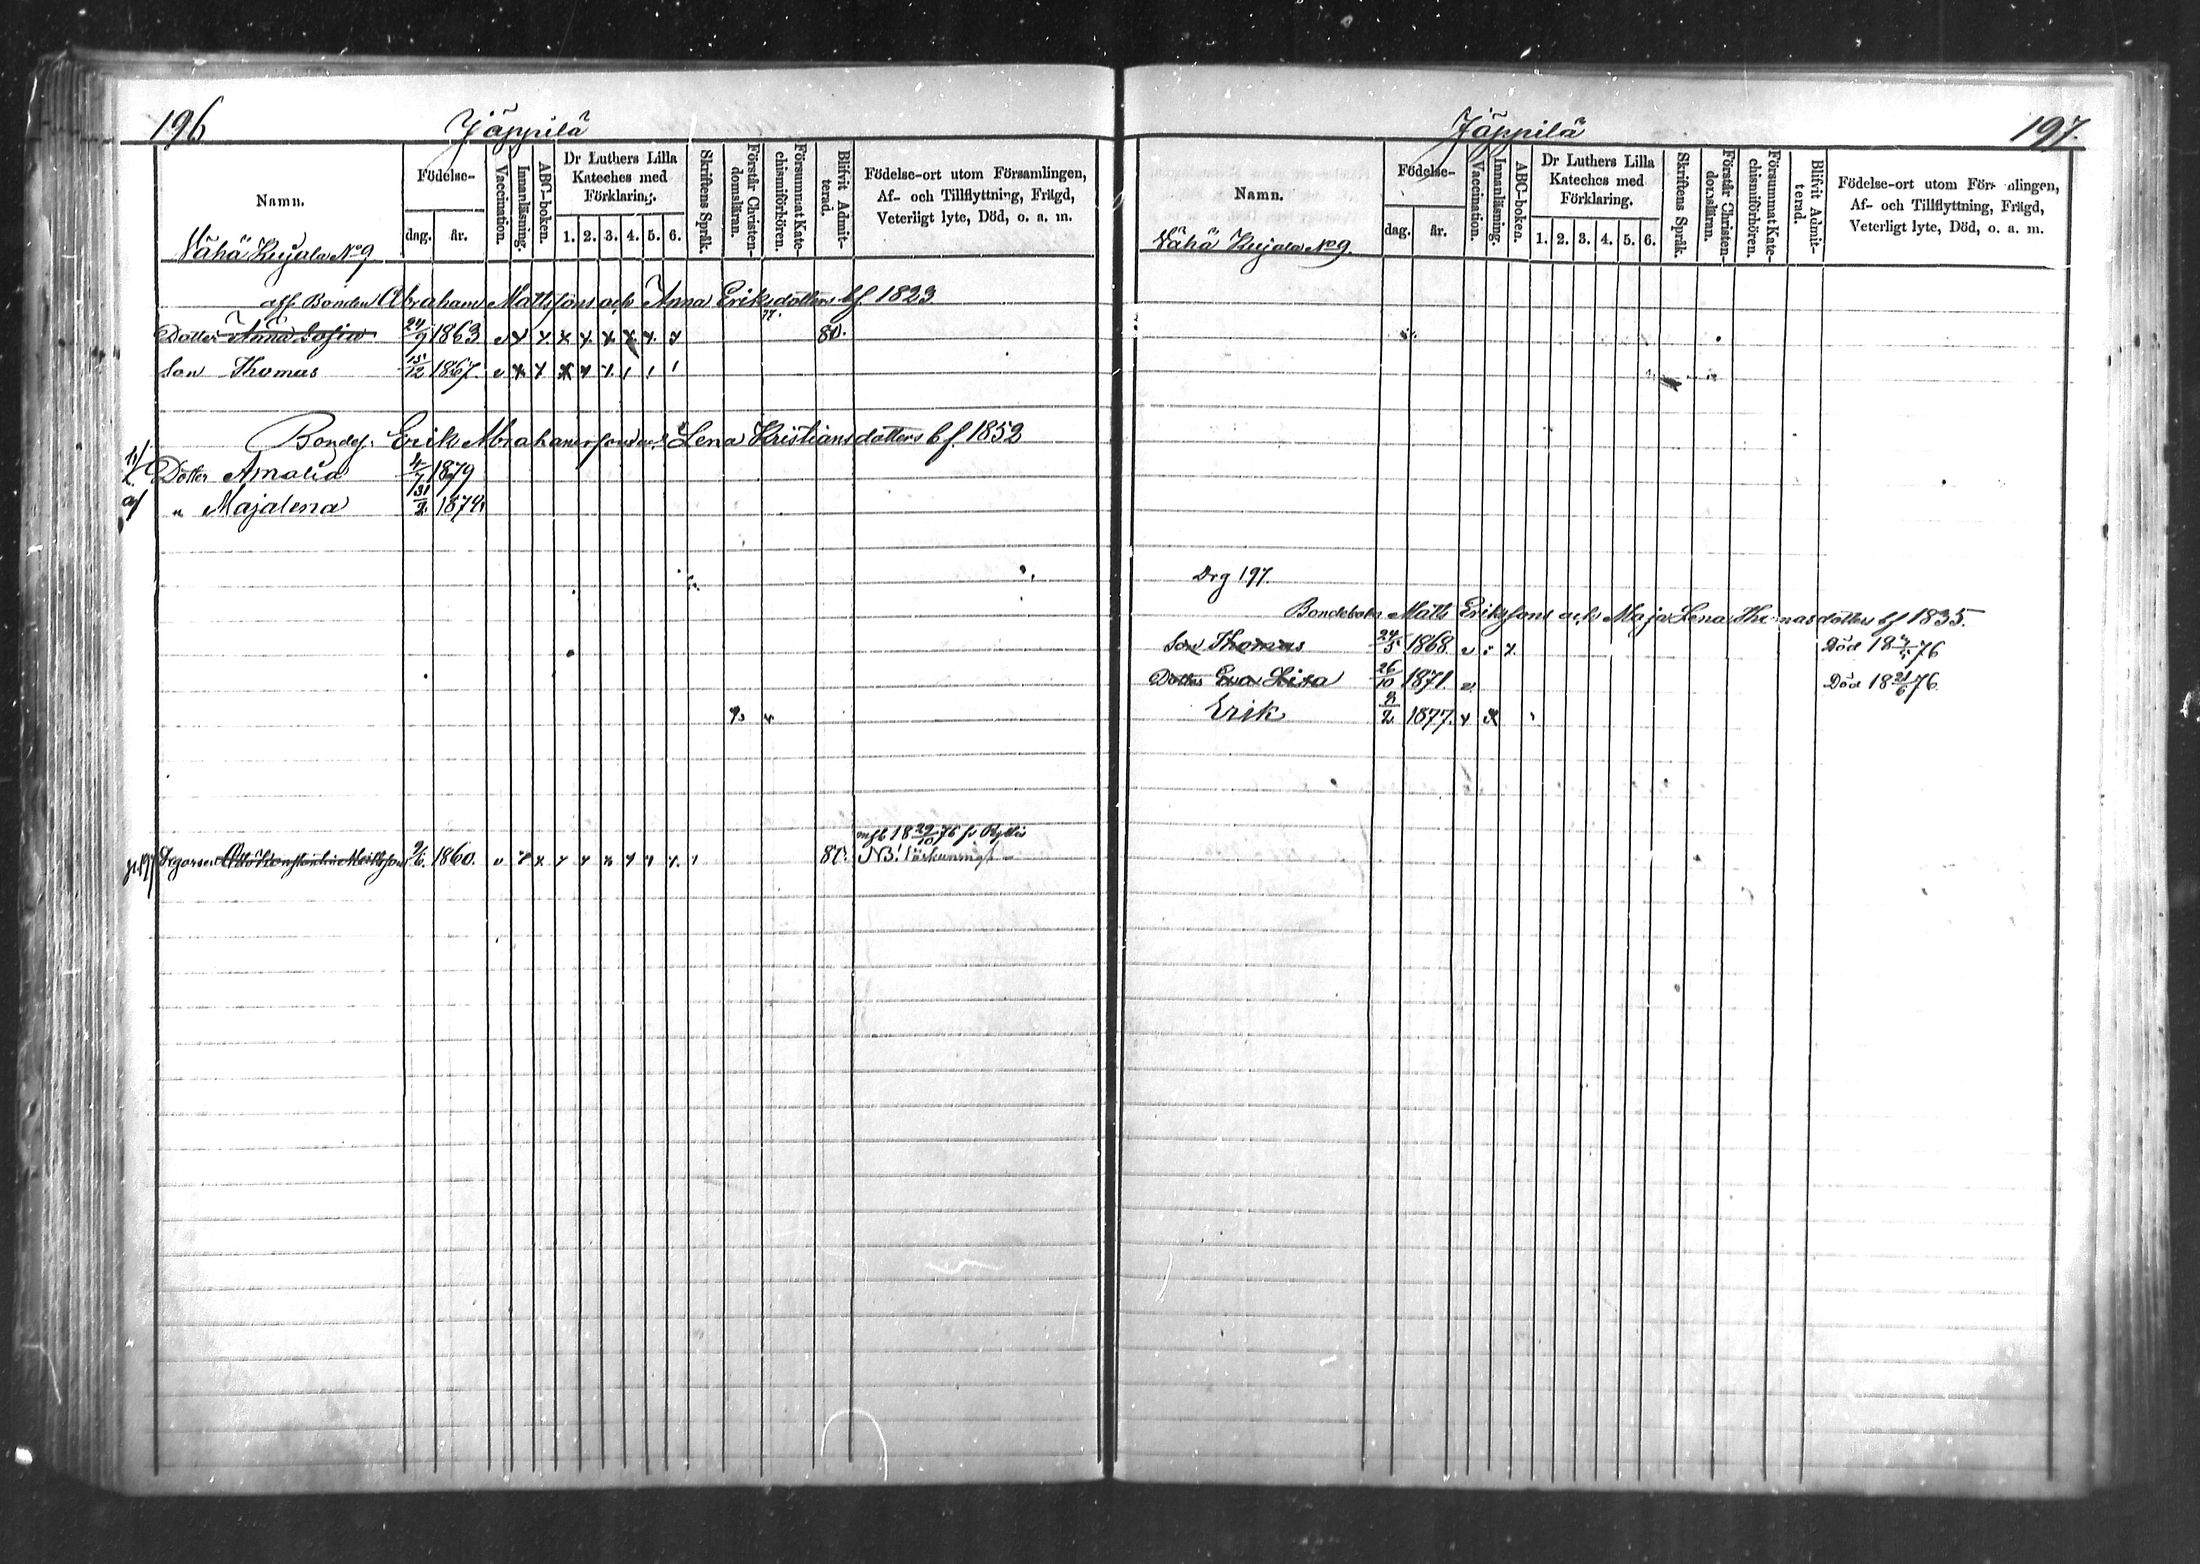 196
Jäppilä
Namn.
Födelse-
dag. år.
Vaccination.
Innanläsning.
ABC-boken.
Dr Luthers Lilla
Kateches med
Förklaring.
1. 2. 3. 4. 5. 6.
Skriftens Språk.
Förstår Christen-
domslänn.
Försummat Kate-
chismiförhören.
Blifvit Admit-
terad.
Födelse-ort utom Församlingen,
Af- och Tillflyttning, Frägd,
Veterligt lyte, Död, o. a. m.
Vähä Kujala No 9
aff. Bonden Abraham Mattssons och Anna Eriksdotters bf 1823
Dotter Anna Sofia 24/9 1863 v x x x x x x x x 80.
Son Thomas 15/12 1867. v x x x x x
Bondes. Erik Abrahamsson Lena Kristiansdotters bf. 1852
Dotter Amalia 4/7 1879
" Majalena 31/2 1874
mfb 18 29/10 76 fr
Otto Konstantin Mattsson 9/6 1860. v x x x x x x x x
NB!
Jäppilä
197.
Namn.
Födelse-
dag. år.
Vaccination.
Innanläsning.
ABC-boken.
Dr Luthers Lilla
Kateches med
Förklaring.
1. 2. 3. 4. 5. 6.
Skriftens Språk.
Förstår Christen-
domsläran.
Försummat Kate-
chismiförhören.
Blifvit Admit-
terad.
Födelse-ort utom För lingen,
Af- och Tillflyttning, Frägd,
Veterligt lyte, Död, o. a. m.
Vähä Kujala No 9.
Drg 197.
Matts Erikssons och Maja Lena Thomasdotters bf 1835.
Son Thomas 24/5 1868 v Död 18 76
Dotter Eva Lisa 26/10 1871. v Död 18 21/6 76.
Erik 3/2 1877.